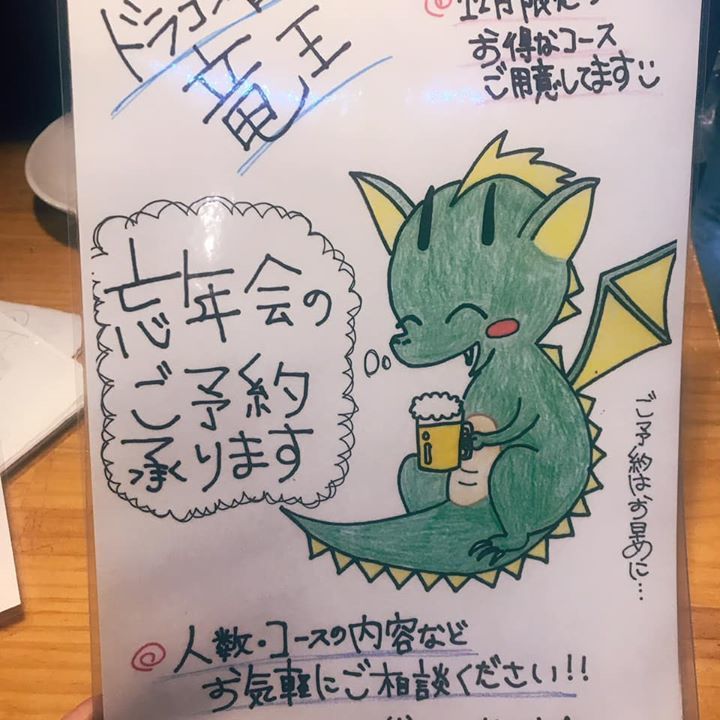 ドラゴン
竜王
12月限定の
お得なコース
ご用意してます
忘年会の
ご予約
承ります
ご予約はお早めに…
人数・コースの内容など
お気軽にご相談ください!!